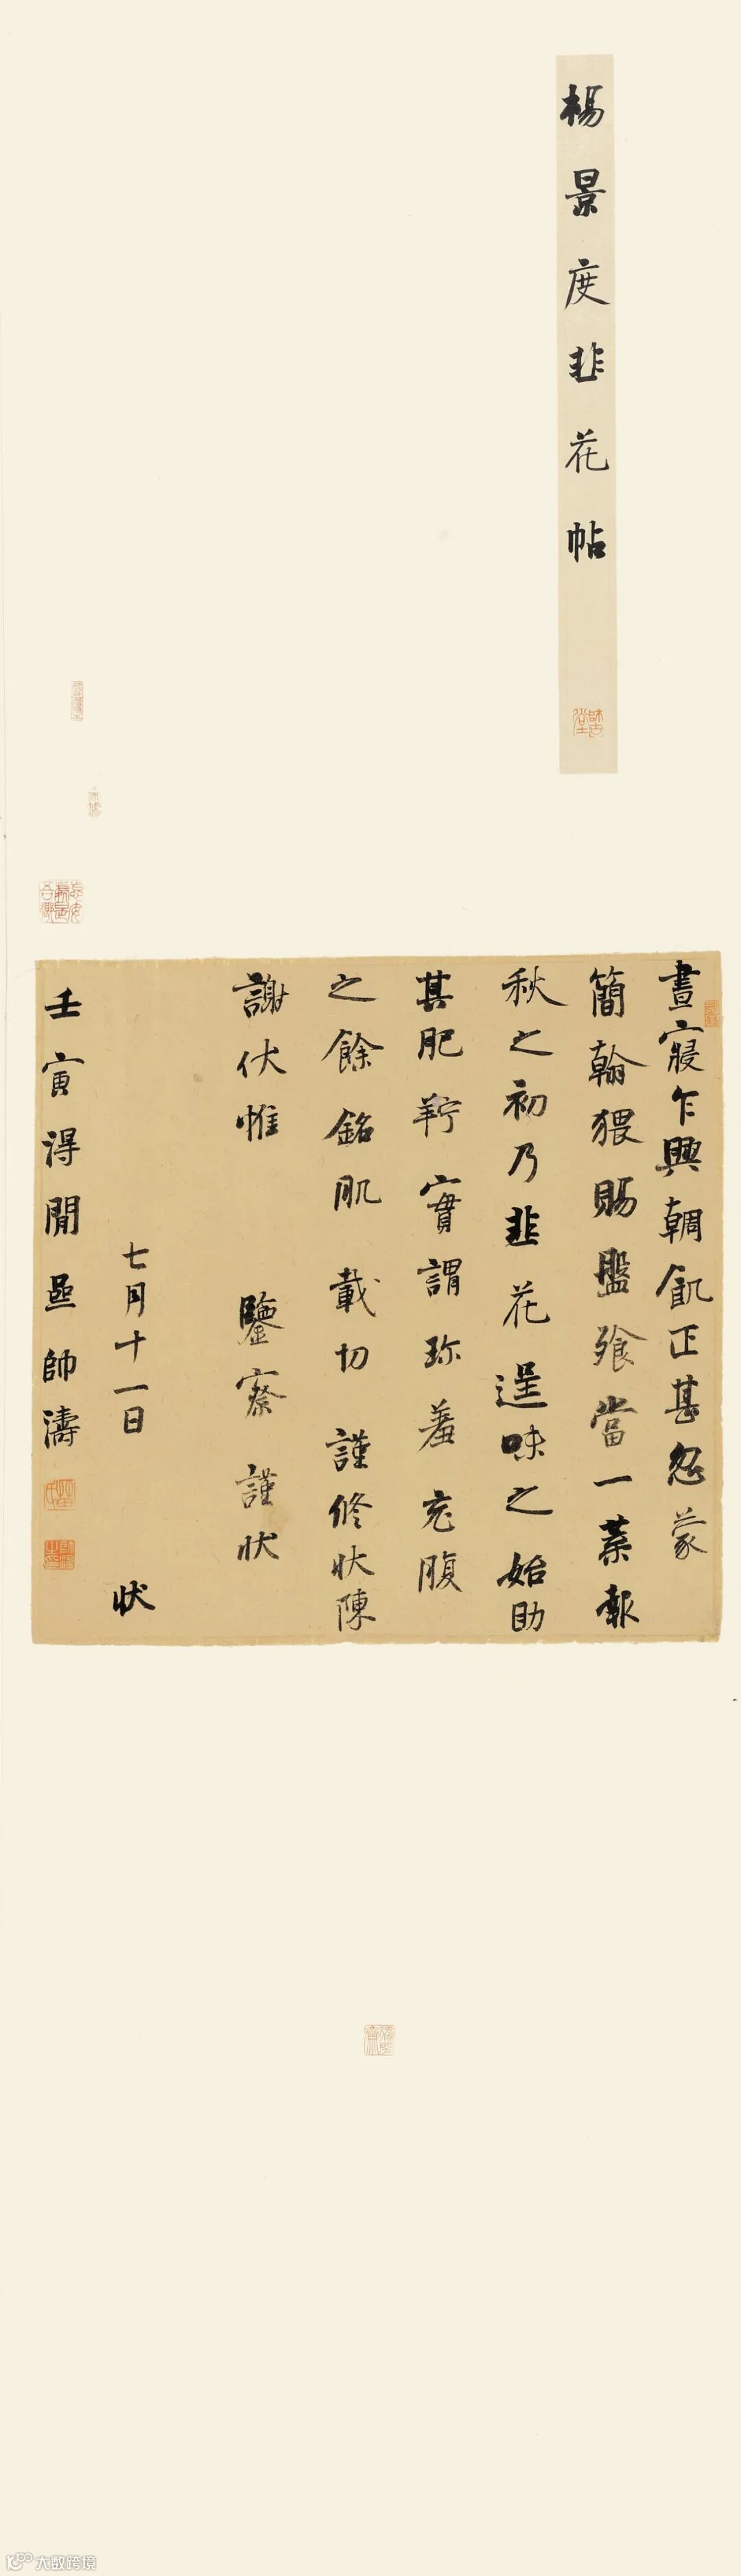 楊景度韭花帖
晝寢乍興輖飢正甚忽蒙
簡翰猥賜盤飧當一葉報
秋之初乃韭花逞味之始助
其肥羜實謂珍羞充腹
之餘銘肌載切 謹修狀陳
謝伏惟 鑒察 謹狀
七月十一日 狀
壬寅得閒 帥濤
大数跨境